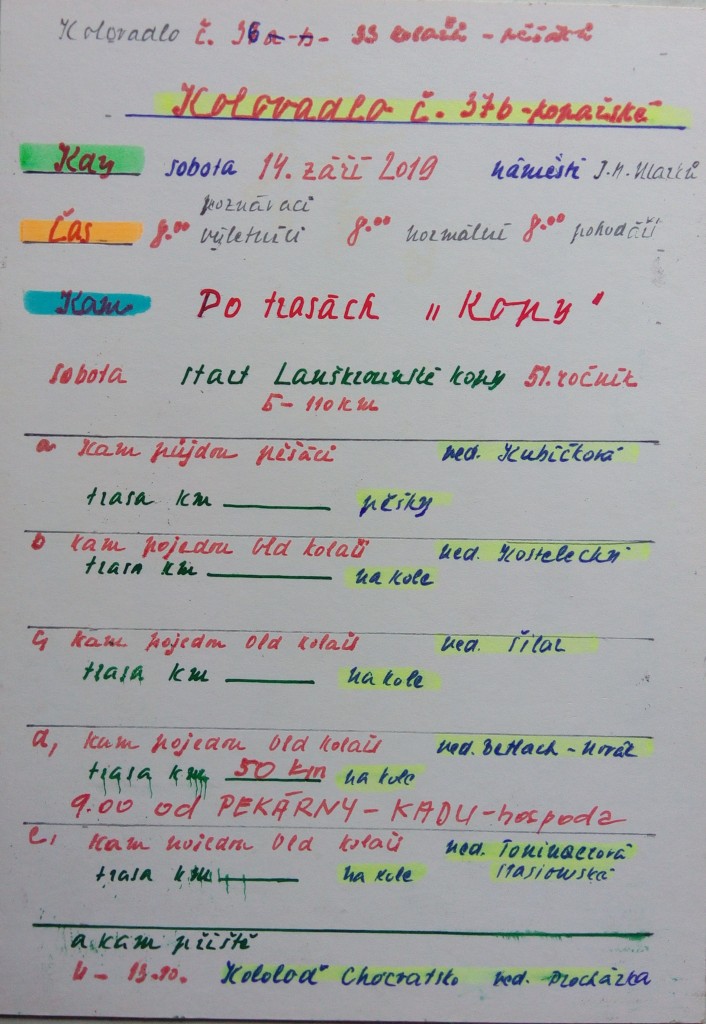 Kolovadlo č. 36 a-b- 33 kolařů - pěšáků
Kolovadlo č. 37b - kopařské
Kdy sobota 14. září 2019 náměstí J. M. Marků
poznávací
Čas 8.00 výletníci 8.00 normální 8.00 pohodáři
Kam Po trasách „Kopy"
sobota start Lanškrounské kopy 51. ročník
5 - 110 km
a kam půjdou pěšáci ved. Kubíčková
trasa km pěšky
b kam pojedou old kolaři ved. Kostelecký
trasa km na kole
c, kam pojedou old kolaři ved. Šilar
trasa km na kole
d, kam pojedou old kolaři ved. Betlach - Novák
trasa km 50 km na kole
9.00 od PEKÁRNY - KADU - hospoda
e, kam pojedou old kolaři ved.
trasa km na kole
a kam příště
11 - 13.10. Kololoď Chorvatsko ved. Procházka